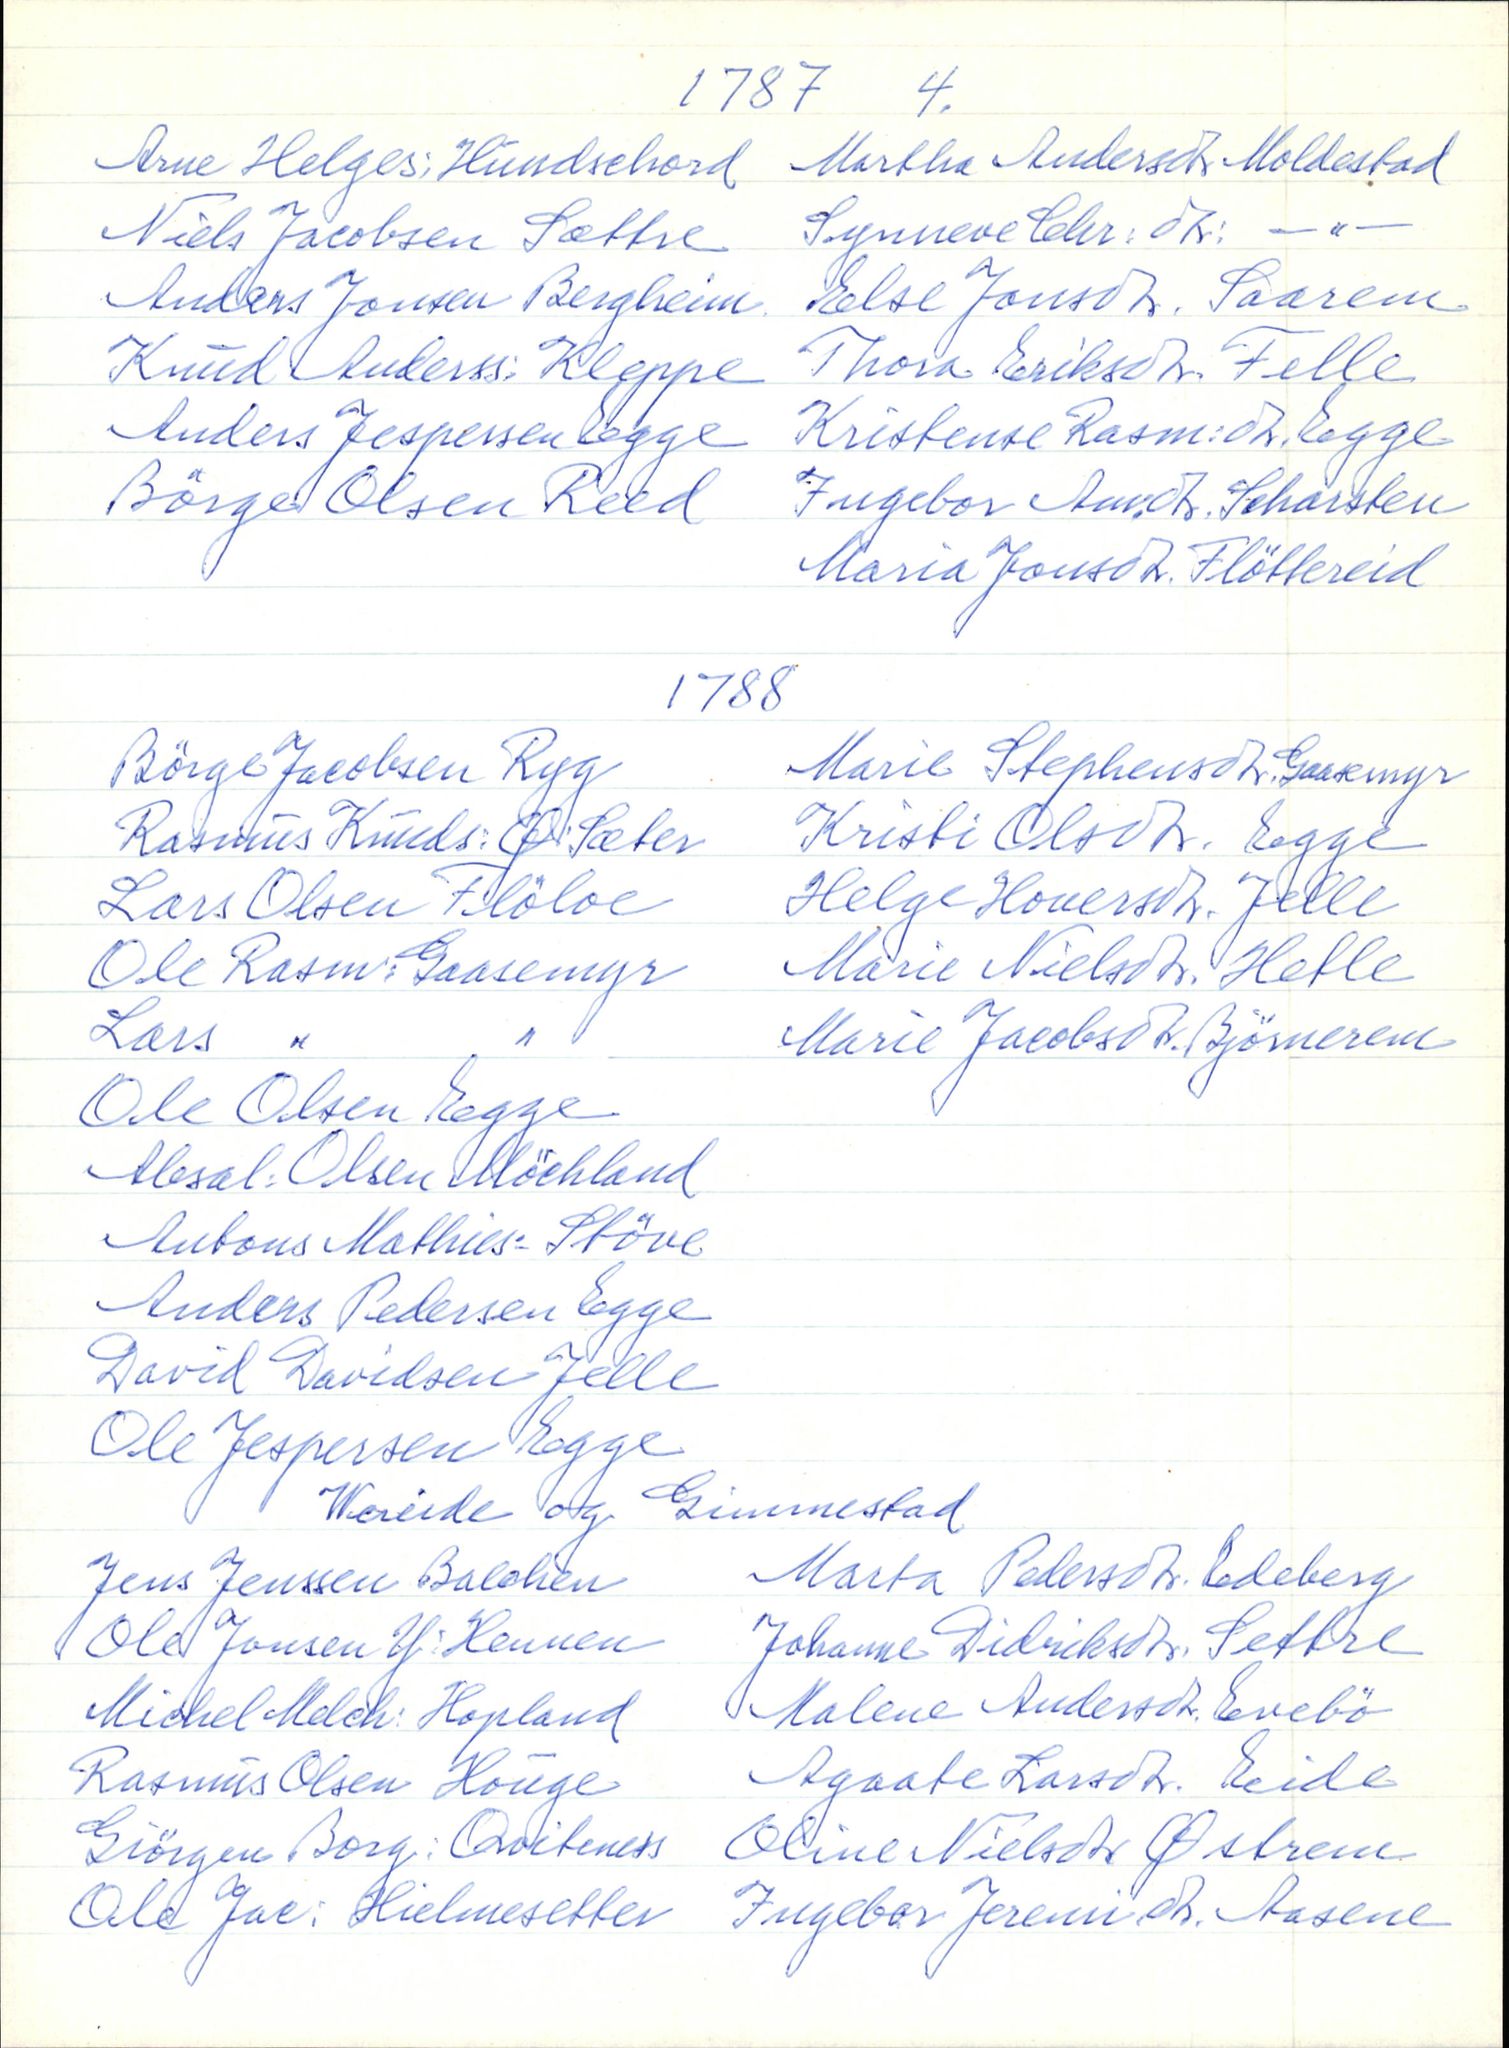 1787 4.
Arne Helges: Hundschord Martha Andersdtr. Moldestad
Niels Jacobsen Sættre Synneve Chr: dtr: —"—
Anders Jonsen Bergheim. Else Jonsdtr. Saarem
Knud Anderss: Kleppe Thora Eriksdtr. Felle
Anders Jespersen Egge Kristense Rasm: dtr. Egge
Börge Olsen Reed Ingebor And.dtr. Scharsten
Maria Jonsdtr. Flöttereid
1788
Börge Jacobsen Ryg Marie Stephensdtr. Gaasemyr
Rasmus Knuds: Ø: Sæter Kristi Olsdtr. Egge
Lars Olsen Flöloe Helge Hoversdtr. Jelle
Ole Rasm: Gaasemyr Marie Nielsdtr. Hetle
Lars " " Marie Jacobsdtr. Björnerem
Ole Olsen Egge
Absal: Olsen Möchland
Antons Mathies: Stöve
Anders Pedersen Egge
David Davidsen Jelle
Ole Jespersen Egge
Wereide og Gimmestad
Jens Jenssen Balchen Marta Pedersdtr. Edeberg
Ole Jonsen Y: Hennen Johanne Didriksdtr. Settre
Michel Melch: Hopland Malene Andersdtr. Evebö
Rasmus Olsen Houge Agaate Larsdtr. Eide
Giörgen Borg: Qviteness Oline Nielsdtr Østrem
Ole Jac: Hielmesetter Ingebor Jeremi.dtr. Aasene